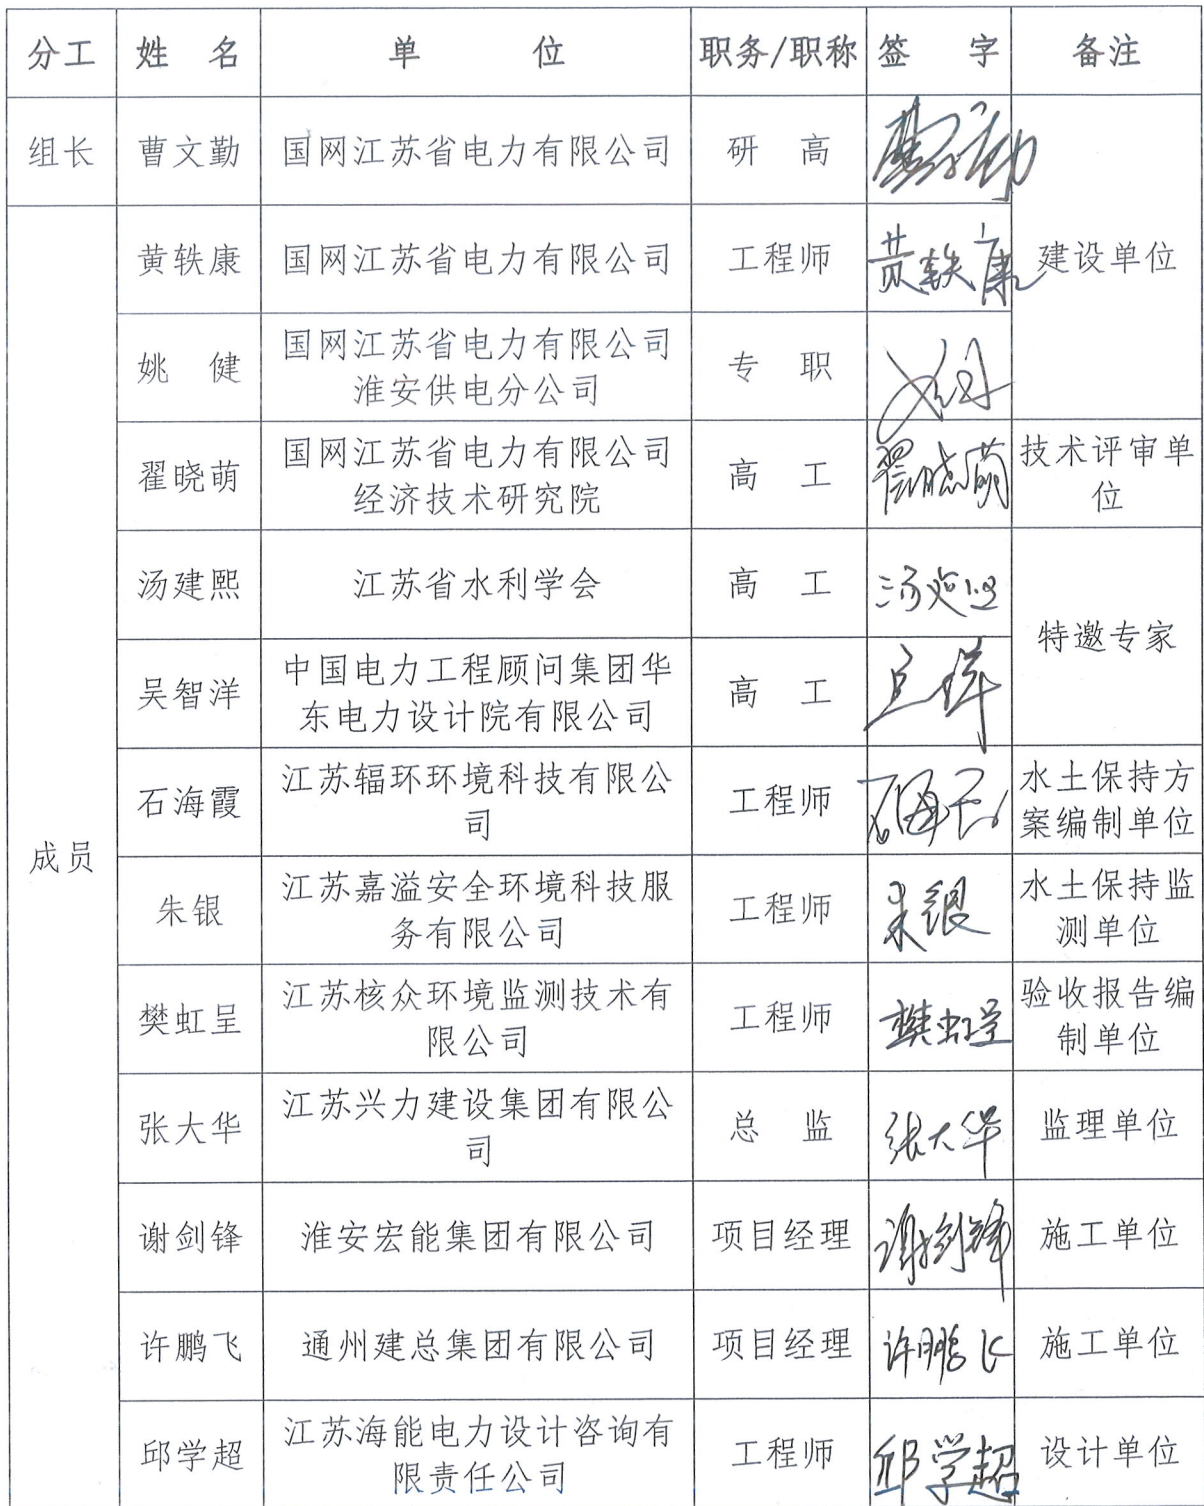 分工 姓 名 单 位 职务/职称 签 字 备注
组长 曹文勤 国网江苏省电力有限公司 研 高 曹文勤
黄轶康 国网江苏省电力有限公司 工程师 黄轶康 建设单位
姚 健 国网江苏省电力有限公司
淮安供电分公司 专 职
翟晓萌 国网江苏省电力有限公司
经济技术研究院 高 工 翟晓萌 技术评审单
位
汤建熙 江苏省水利学会 高 工 汤建熙
特邀专家
吴智洋 中国电力工程顾问集团华
东电力设计院有限公司 高 工
成员
石海霞 江苏辐环环境科技有限公
司 工程师 石海霞 水土保持方
案编制单位
朱银 江苏嘉溢安全环境科技服
务有限公司 工程师 朱银 水土保持监
测单位
樊虹呈 江苏核众环境监测技术有
限公司 工程师 樊虹呈 验收报告编
制单位
张大华 江苏兴力建设集团有限公
司 总 监 张大华 监理单位
谢剑锋 淮安宏能集团有限公司 项目经理 谢剑锋 施工单位
许鹏飞 通州建总集团有限公司 项目经理 许鹏飞 施工单位
邱学超 江苏海能电力设计咨询有
限责任公司 工程师 邱学超 设计单位